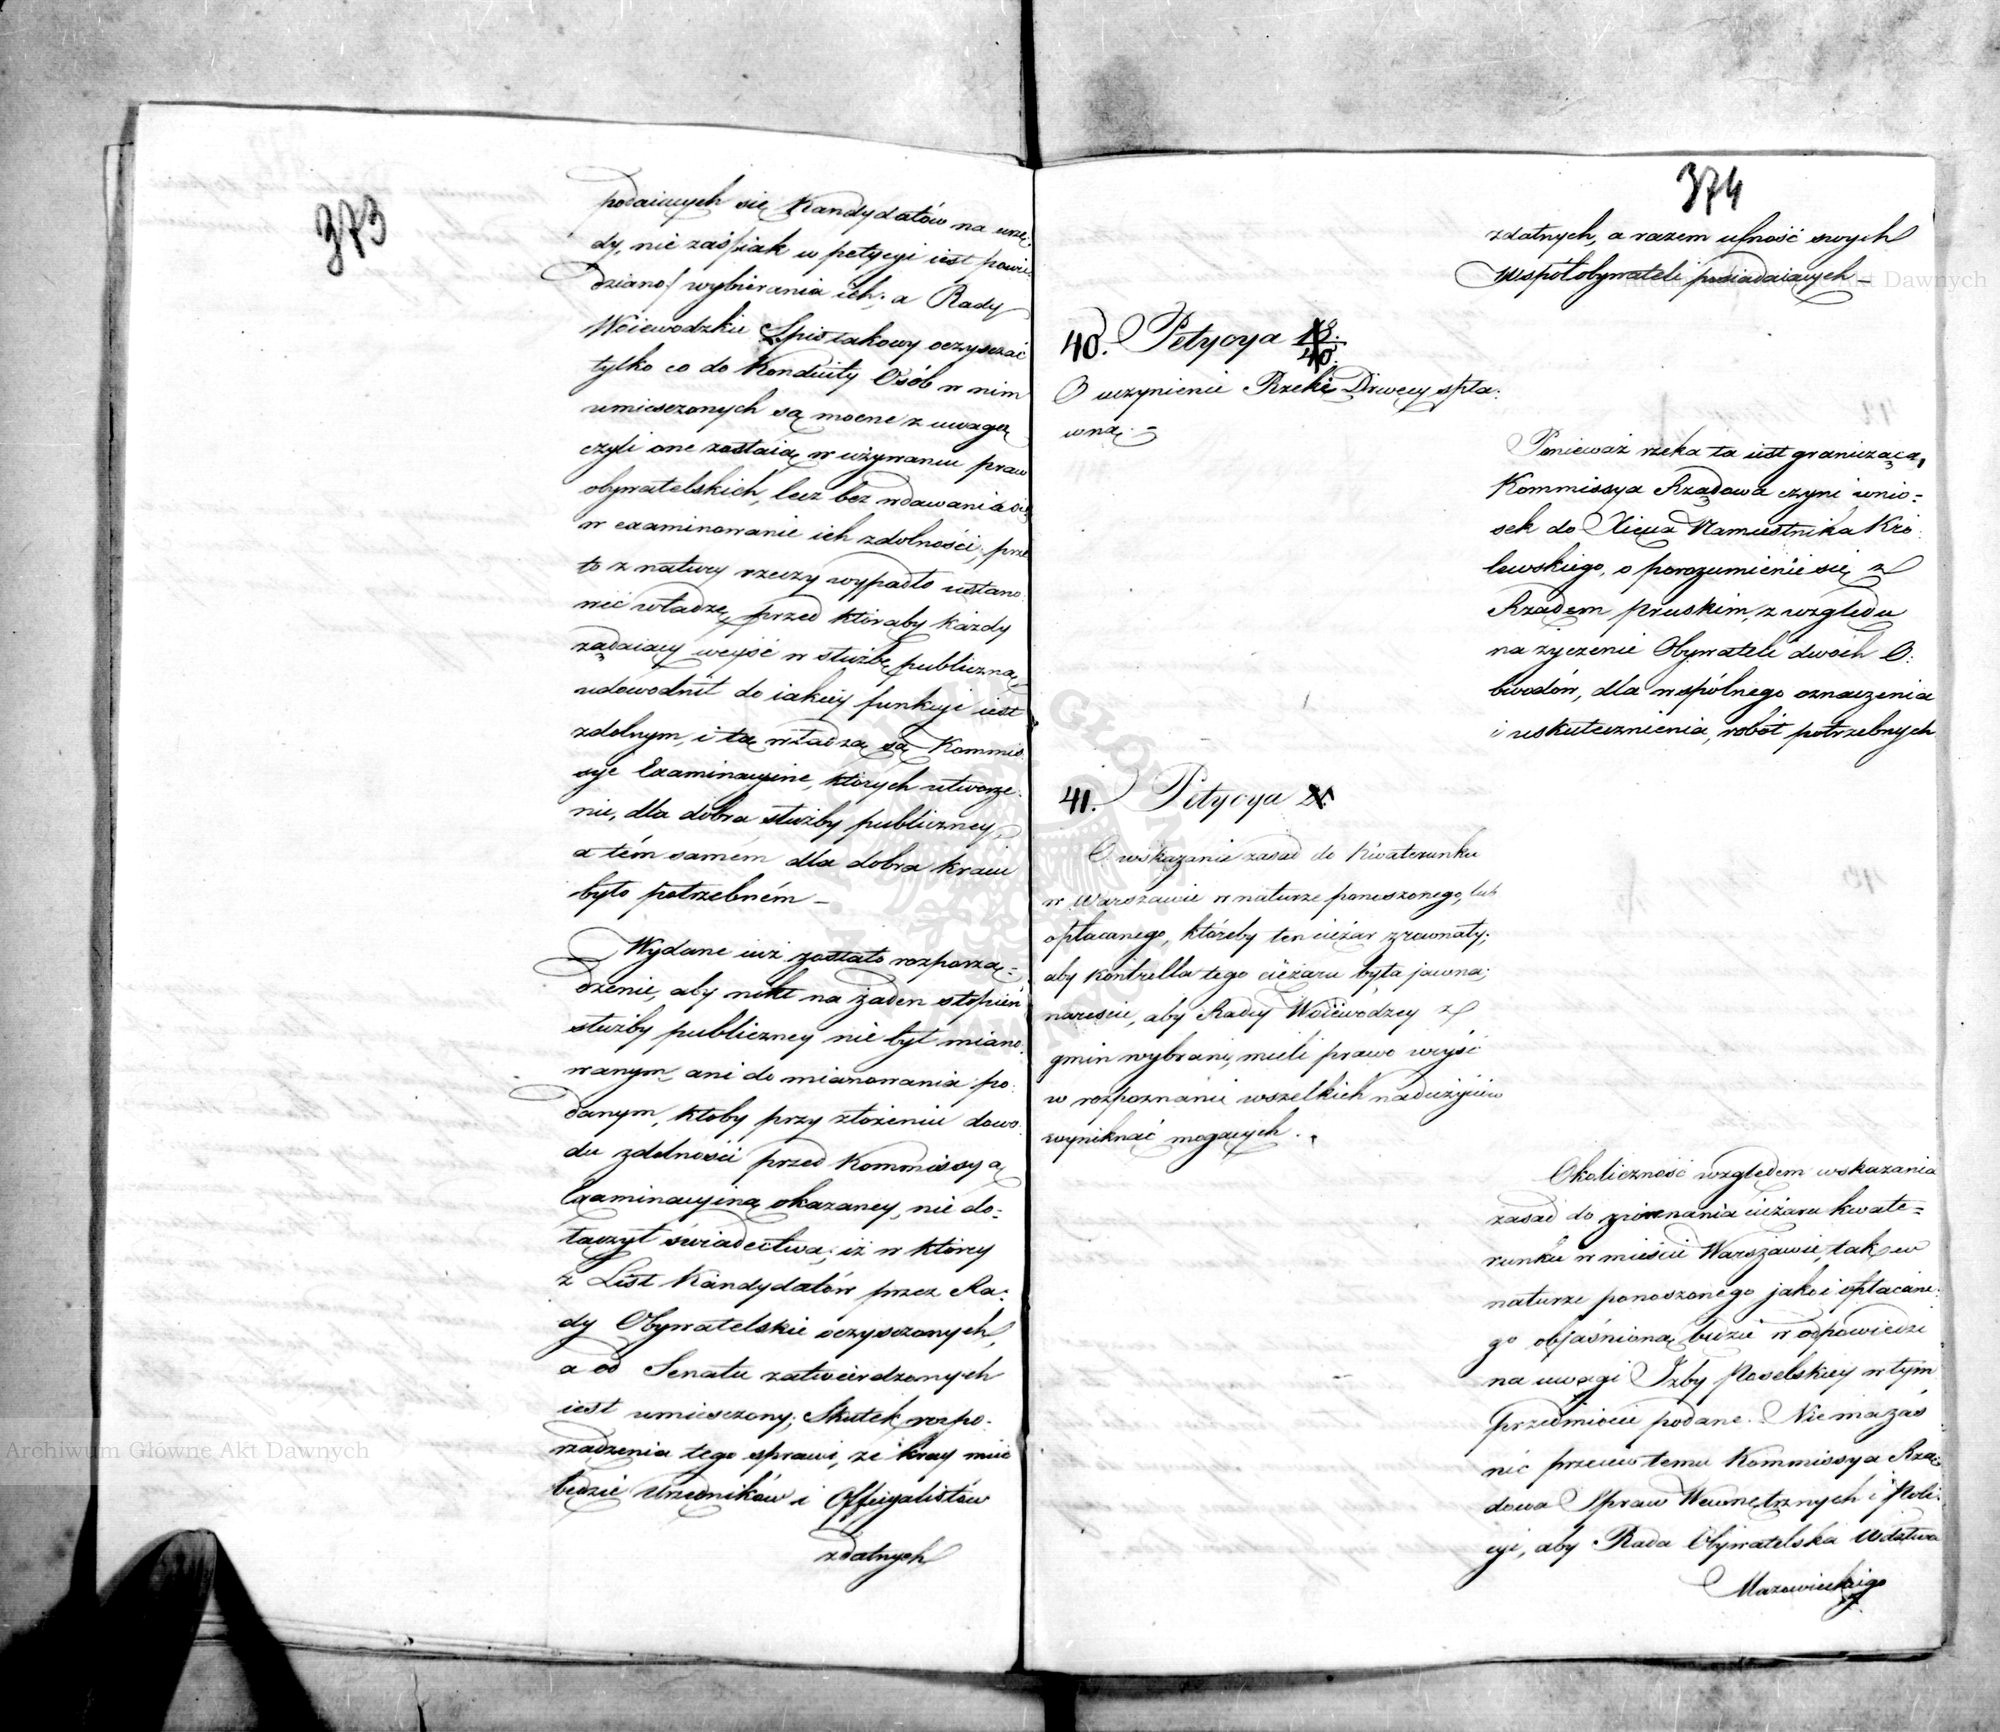 373
podaiących się Kandydatów na urzę:
dy, nie zaś /iak w petycyi iest powie:
dziano/ wybierania ich; a Rady
Woiewodzkie Spis takowy oczyszczać
tylko co do Konduity Osób w nim
umieszczonych są mocne z uwagą
czyli one zostaią w używaniu praw
obywatelskich, lecz bez wdawania się
w examinowanie ich zdolności; prze
to z natury rzeczy wypadło ustano:
wić władzę, przed którąby każdy
żądaiący weyść w służbę publiczną,
udowodnił do iakiey funkcyi iest
zdolnym, i tą władzą są Kommis:
sye Examinacyine, których utworze:
nie, dla dobra służby publiczney,
a tém samém dla dobra kraiu
było potrzebném –
Wydane iuż zostało rozporzą=
dzenie, aby nikt na żaden stopień
służby publiczney nie był miano:
wanym, ani do mianowania po:
danym, ktoby przy złożeniu dowo:
du zdolności przed Kommissyą
Examinacyiną okazaney, nie do:
łączył świadectwa, iż w którey
z List Kandydatów przez Ra:
dy Obywatelskie oczyszczonych,
a od Senatu zatwierdzonych
iest umieszczony; Skutek rozpo:
rządzenia tego sprawi, że kray mieć
będzie Urzędników i Officyalistów
zdatnych
374
zdatnych, a razem ufność swych
współobywateli posiadaiących –
40. Petycya
O uczynienie Rzeki Drwęcy spła:
wną. –
Ponieważ rzeka ta iest graniczącą,
Kommissya Rządowa czyni wnio=
sek do Xięcia Namiestnika Kró:
lewskiego, o porozumienie się z
Rządem pruskim, z względu
na życzenie Obywateli dwóch O:
bwodów, dla wspólnego oznaczenia
i uskutecznienia, robót potrzebnych
41. Petycya
O wskazanie zasad do Kwaterunku
w Warszawie w naturze ponoszonego, lub
opłacanego, któreby ten ciężar zrównały;
aby kontrolla tego ciężaru była jawna;
nareście, aby Radcy Woiewodzcy z
gmin wybrani, mieli prawo weyść
w rozpoznanie wszelkich nadużyciów
wyniknąć mogących.
Okoliczność względem wskazania
zasad do zrównania ciężaru kwate=
runku w mieście Warszawie, tak w
naturze ponoszonego jako i opłacane:
go objaśnioną będzie w odpowiedzi
na uwagi Izby Poselskiey w tym
przedmiocie podane. Nie ma zaś
nic przeciw temu Kommissya Rzą:
dowa Spraw Wewnętrznych i Poli:
cyi, aby Rada Obywatelska Wdztwa
Mazowieckiego
Archiwum Główne Akt Dawnych